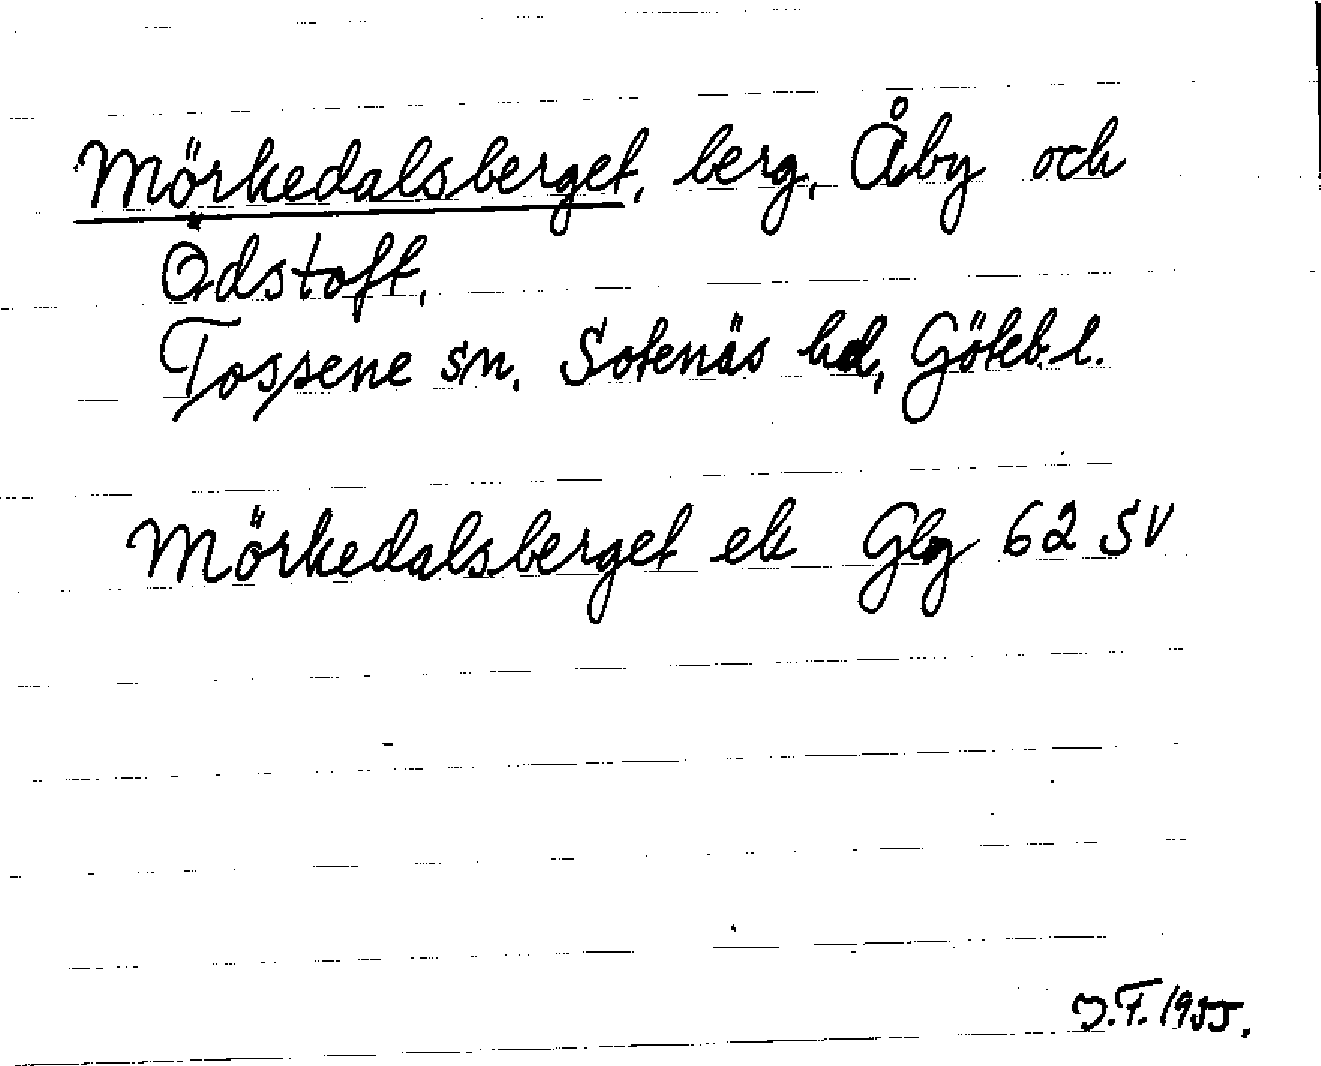 Mörkedalsberget, berg, Åby och
Ödstoft,
Tossene sn. Sotenäs hd, Göteb. l.
Mörkedalsberget ek Glg 62 SV
J.F. 1955.